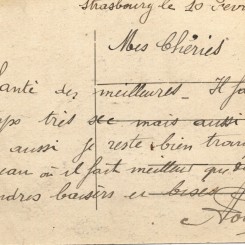 Strasbourg le 10 Fevr
Mes Chéries
Santé des meilleures. Il fa
ps très sec mais aussi
aussi je reste bien tran
eau où il fait meilleur qu
ndres baisers et bises